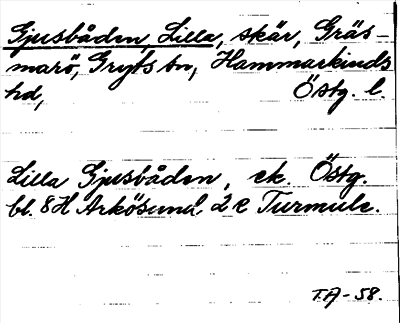 Gjusbåden, Lilla, skär, Gräs-
marö, Gryts sn, Hammarkinds
hd, Östg. l.
Lilla Gjusbåden, ek. Östg.
bl. 8H Arkösund 2 e Turmule.
T.A-58.